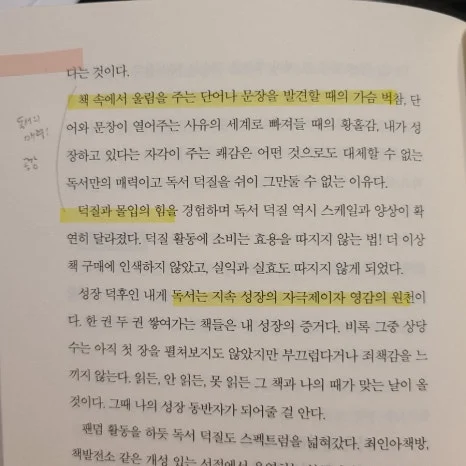 다는 것이다.
책 속에서 울림을 주는 단어나 문장을 발견할 때의 가슴 벅참, 단
어와 문장이 열어주는 사유의 세계로 빠져들 때의 황홀감, 내가 성
장하고 있다는 자각이 주는 쾌감은 어떤 것으로도 대체할 수 없는
독서만의 매력이고 독서 덕질을 쉬이 그만둘 수 없는 이유다.
덕질과 몰입의 힘을 경험하며 독서 덕질 역시 스케일과 양상이 확
연히 달라졌다. 덕질 활동에 소비는 효용을 따지지 않는 법! 더 이상
책 구매에 인색하지 않았고, 실익과 실효도 따지지 않게 되었다.
성장 덕후인 내게 독서는 지속 성장의 자극제이자 영감의 원천이
다. 한 권 두 권 쌓여가는 책들은 내 성장의 증거다. 비록 그중 상당
수는 아직 첫 장을 펼쳐보지도 않았지만 부끄럽다거나 죄책감을 느
끼지 않는다. 읽든, 안 읽든, 못 읽든 그 책과 나의 때가 맞는 날이 올
것이다. 그때 나의 성장 동반자가 되어줄 걸 안다.
팬덤 활동을 하듯 독서 덕질도 스펙트럼을 넓혀갔다. 최인아책방,
책발전소 같은 개성 있는 서점에서